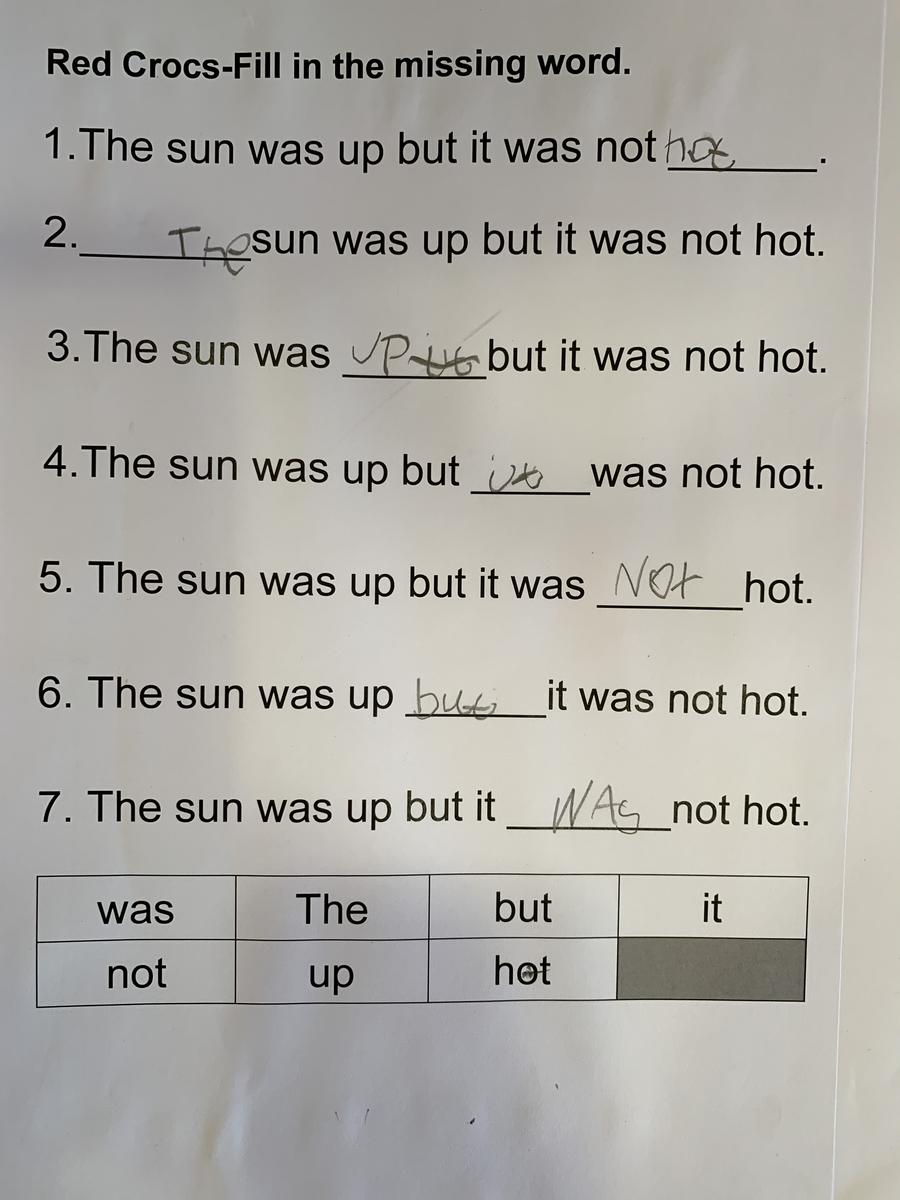 Red Crocs-Fill in the missing word.
1.The sun was up but it was not hot.
2. The sun was up but it was not hot.
3.The sun was UP it but it was not hot.
4.The sun was up but it was not hot.
5. The sun was up but it was NOt hot.
6. The sun was up but it was not hot.
7. The sun was up but it WAS not hot.
was The but it
not up hot